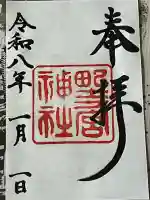 奉拝
野宮
神社
令和八年一月一日